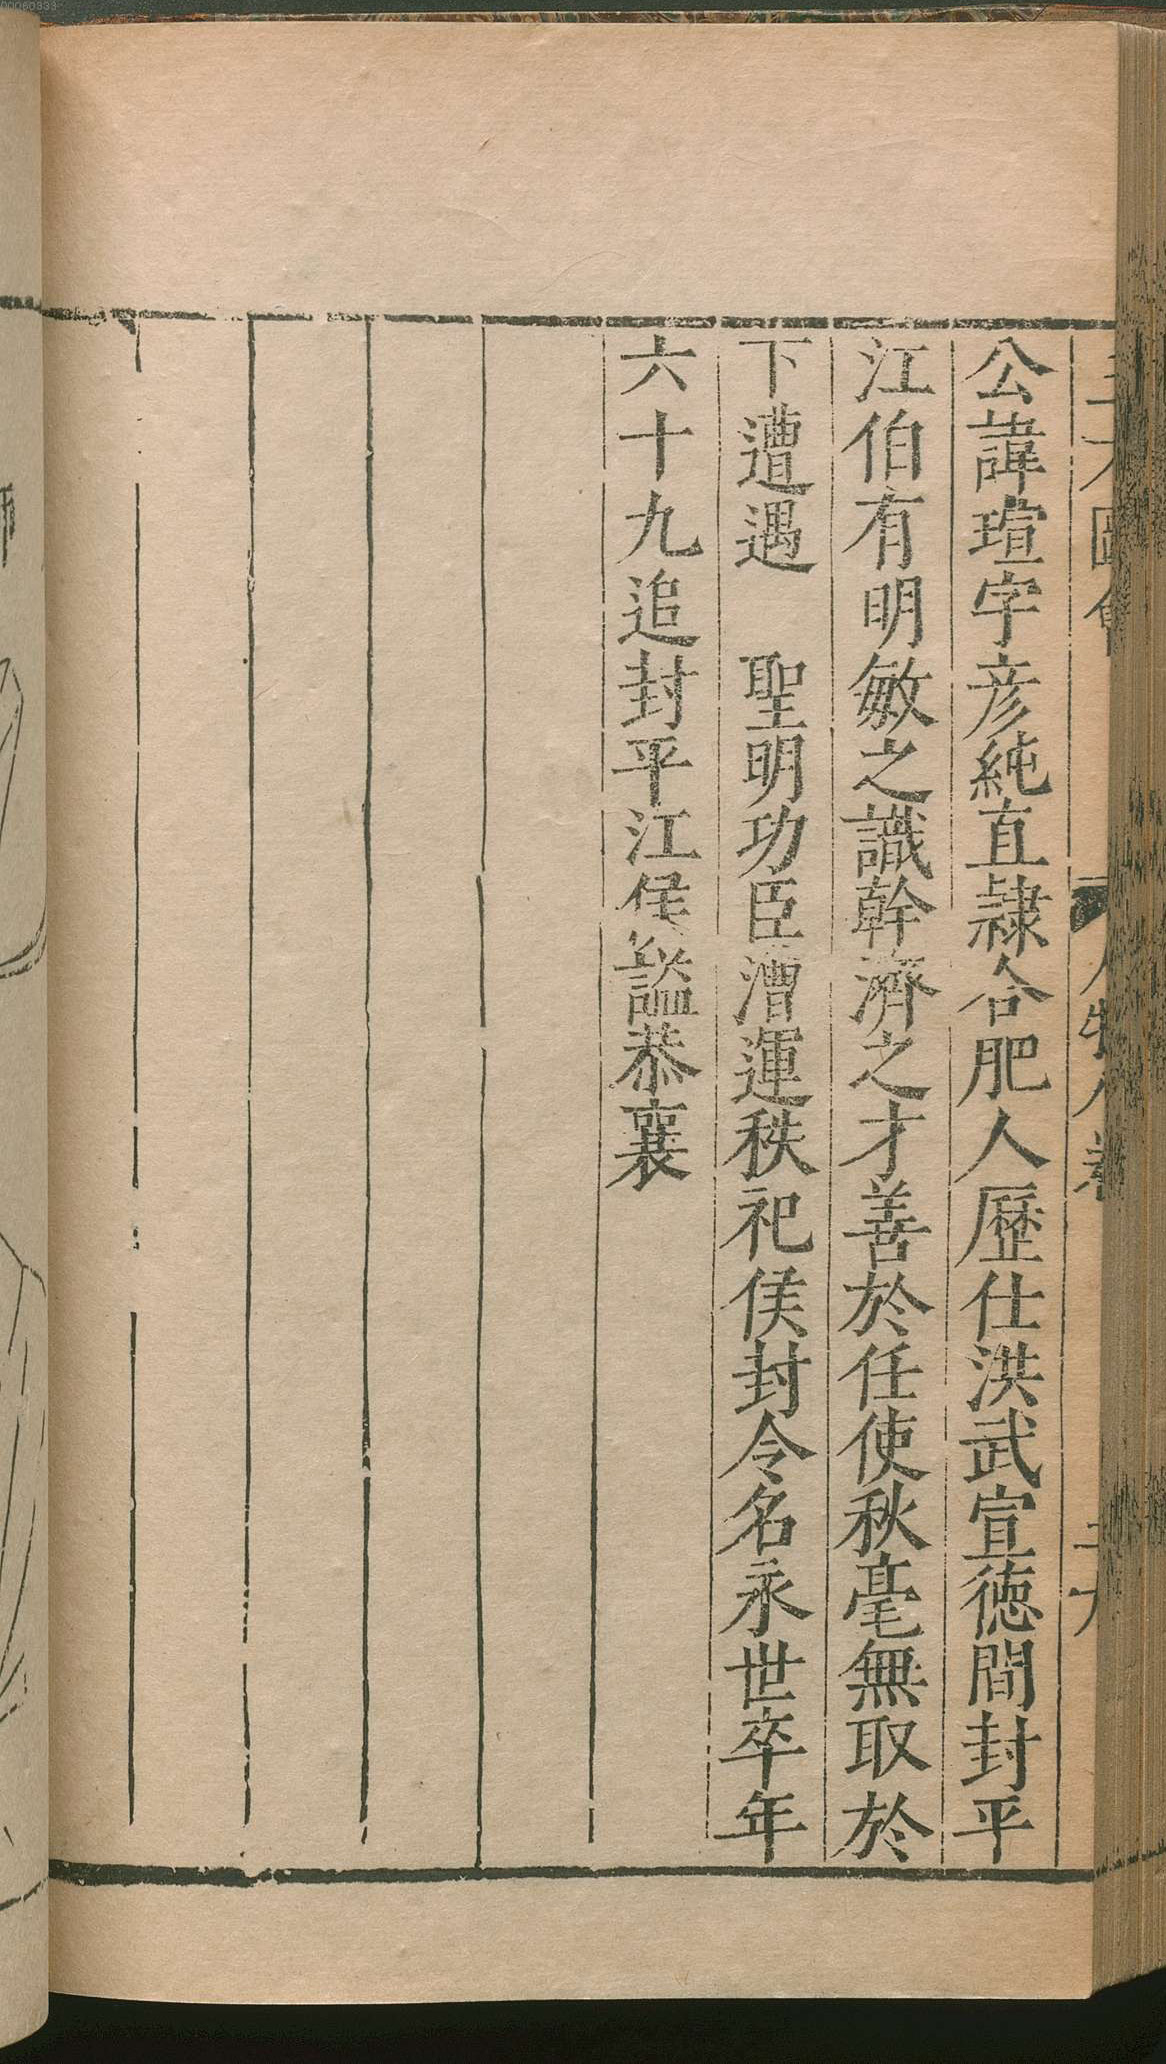 公諱瑄字彦純直隷合肥人歴仕洪武宣德間封平
江伯有明敏之識幹濟之才善於任使秋毫無取於
下遭遇　聖明功臣漕運秩祀侯封令名永世卒年
六十九追封平江侯謚恭襄
00060333